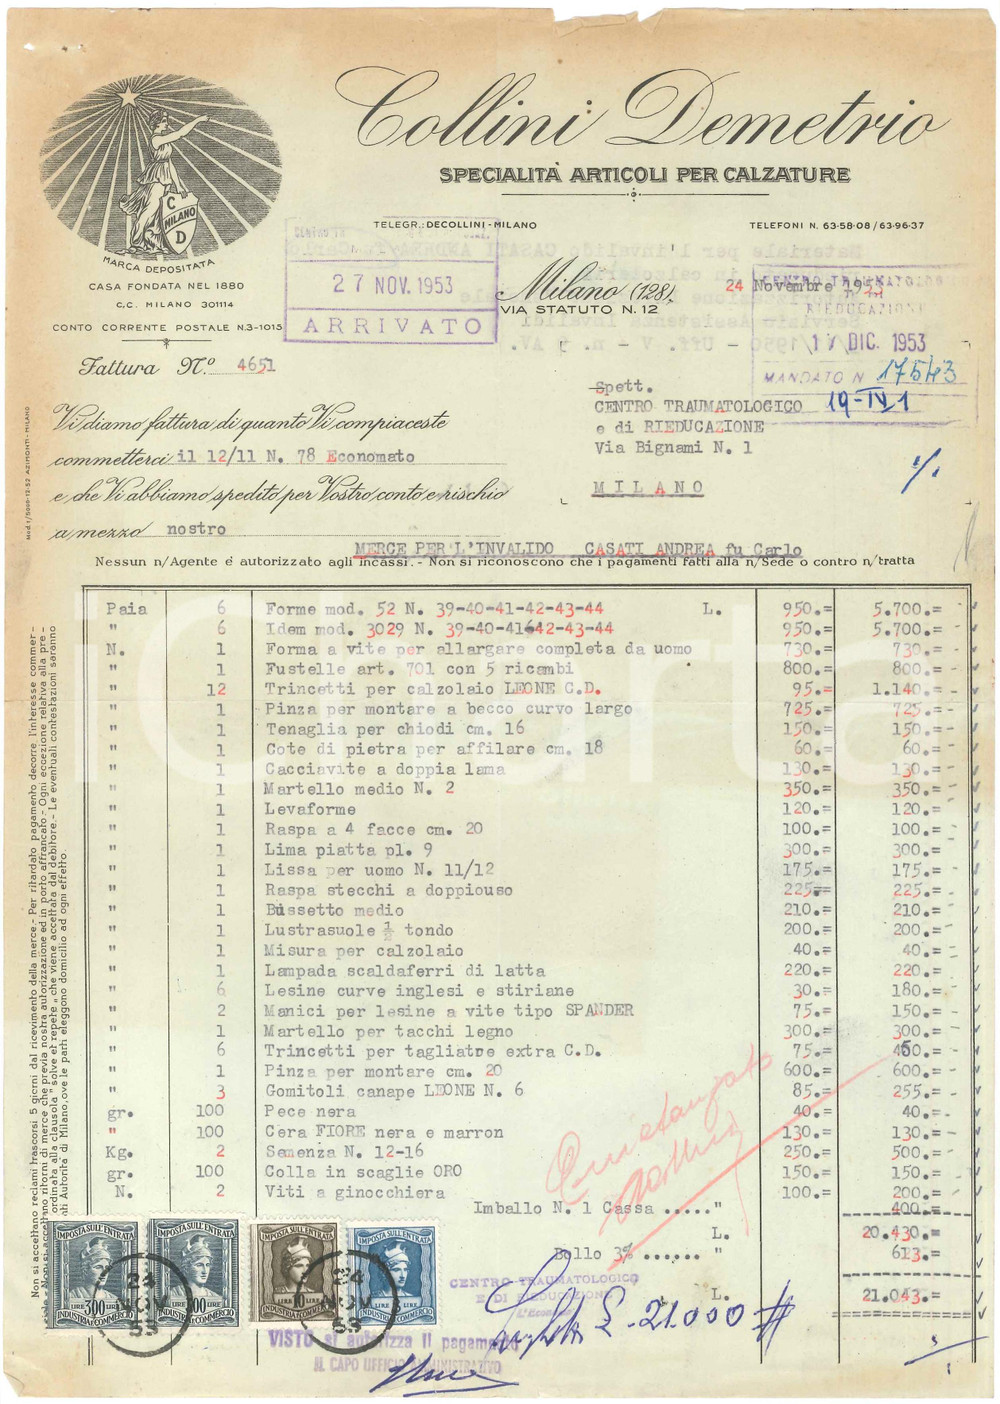 Collini Demetrio
SPECIALITÀ ARTICOLI PER CALZATURE
TELEGR.: DECOLLINI - MILANO
TELEFONI N. 63-58-08 / 63-96-37
C MILANO D
MARCA DEPOSITATA
CASA FONDATA NEL 1880
C.C. MILANO 301114
CONTO CORRENTE POSTALE N.3-1015
27 NOV. 1953
ARRIVATO
Milano (128), 24 Novembre 1953
VIA STATUTO N. 12
CENTRO TRAUMATOLOGICO
RIEDUCAZIONE
17 DIC. 1953
MANDATO N 17543
19-IV 1
Fattura N.º 4651
Spett.
CENTRO TRAUMATOLOGICO
e di RIEDUCAZIONE
Via Bignami N. 1
MILANO
Vi diamo fattura di quanto Vi compiaceste
commetterci il 12/11 N. 78 Economato
e che Vi abbiamo spedito per Vostro conto e rischio
a mezzo nostro
MERCE PER L'INVALIDO CASATI ANDREA fu Carlo
Nessun n/Agente e' autorizzato agli incassi. - Non si riconoscono che i pagamenti fatti alla n/Sede o contro n/tratta
Paia 6 Forme mod. 52 N. 39-40-41-42-43-44 L. 950.= 5.700.=
" 6 Idem mod. 3029 N. 39-40-41-42-43-44 950.= 5.700.=
N. 1 Forma a vite per allargare completa da uomo 730.= 730.=
" 1 Fustelle art. 701 con 5 ricambi 800.= 800.=
" 12 Trincetti per calzolaio LEONE C.D. 95.= 1.140.=
" 1 Pinza per montare a becco curvo largo 725.= 725.=
" 1 Tenaglia per chiodi cm. 16 150.= 150.=
" 1 Cote di pietra per affilare cm. 18 60.= 60.=
" 1 Cacciavite a doppia lama 130.= 130.=
" 1 Martello medio N. 2 350.= 350.=
" 1 Levaforme 120.= 120.=
" 1 Raspa a 4 facce cm. 20 100.= 100.=
" 1 Lima piatta pl. 9 300.= 300.=
" 1 Lissa per uomo N. 11/12 175.= 175.=
" 1 Raspa stecchi a doppiouso 225.= 225.=
" 1 Bussetto medio 210.= 210.=
" 1 Lustrasuole ½ tondo 200.= 200.=
" 1 Misura per calzolaio 40.= 40.=
" 1 Lampada scaldaferri di latta 220.= 220.=
" 6 Lesine curve inglesi e stiriane 30.= 180.=
" 2 Manici per lesine a vite tipo SPANDER 75.= 150.=
" 1 Martello per tacchi legno 300.= 300.=
" 6 Trincetti per tagliatre extra C.D. 75.= 450.=
" 1 Pinza per montare cm. 20 600.= 600.=
" 3 Gomitoli canape LEONE N. 6 85.= 255.=
gr. 100 Pece nera 40.= 40.=
" 100 Cera FIORE nera e marron 130.= 130.=
Kg. 2 Semenza N. 12-16 250.= 500.=
gr. 100 Colla in scaglie ORO 150.= 150.=
N. 2 Viti a ginocchiera 100.= 200.=
Imballo N. 1 Cassa ....." 400.=
L. 20.430.=
Bollo 3% ...... " 613.=
L. 21.043.=
Quietanzato
Collini
CENTRO TRAUMATOLOGICO
E DI RIEDUCAZIONE
£. 21.000 #
VISTO si autorizza il pagamento
IL CAPO UFFICIO AMMINISTRATIVO
IMPOSTA SULL'ENTRATA
LIRE 300 LIRE
INDUSTRIA E COMMERCIO
IMPOSTA SULL'ENTRATA
INDUSTRIA E COMMERCIO
IMPOSTA SULL'ENTRATA
LIRE 10 LIRE
INDUSTRIA E COMMERCIO
IMPOSTA SULL'ENTRATA
LIRE 3 LIRE
INDUSTRIA E COMMERCIO
24 NOV 53
24 NOV 53
Mod. 1/5000-12-52 AZIMONTI - MILANO
Non si accettano reclami trascorsi 5 giorni dal ricevimento della merce. - Per ritardato pagamento decorre l'interesse commer-